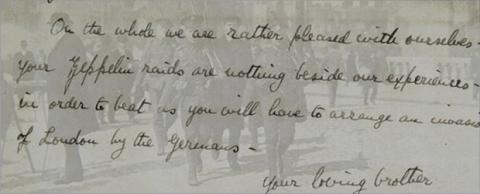 On the whole we are rather pleased with ourselves -
your Zeppelin raids are nothing beside our experiences -
in order to beat us you will have to arrange an invasio
of London by the Germans -
Your loving brother